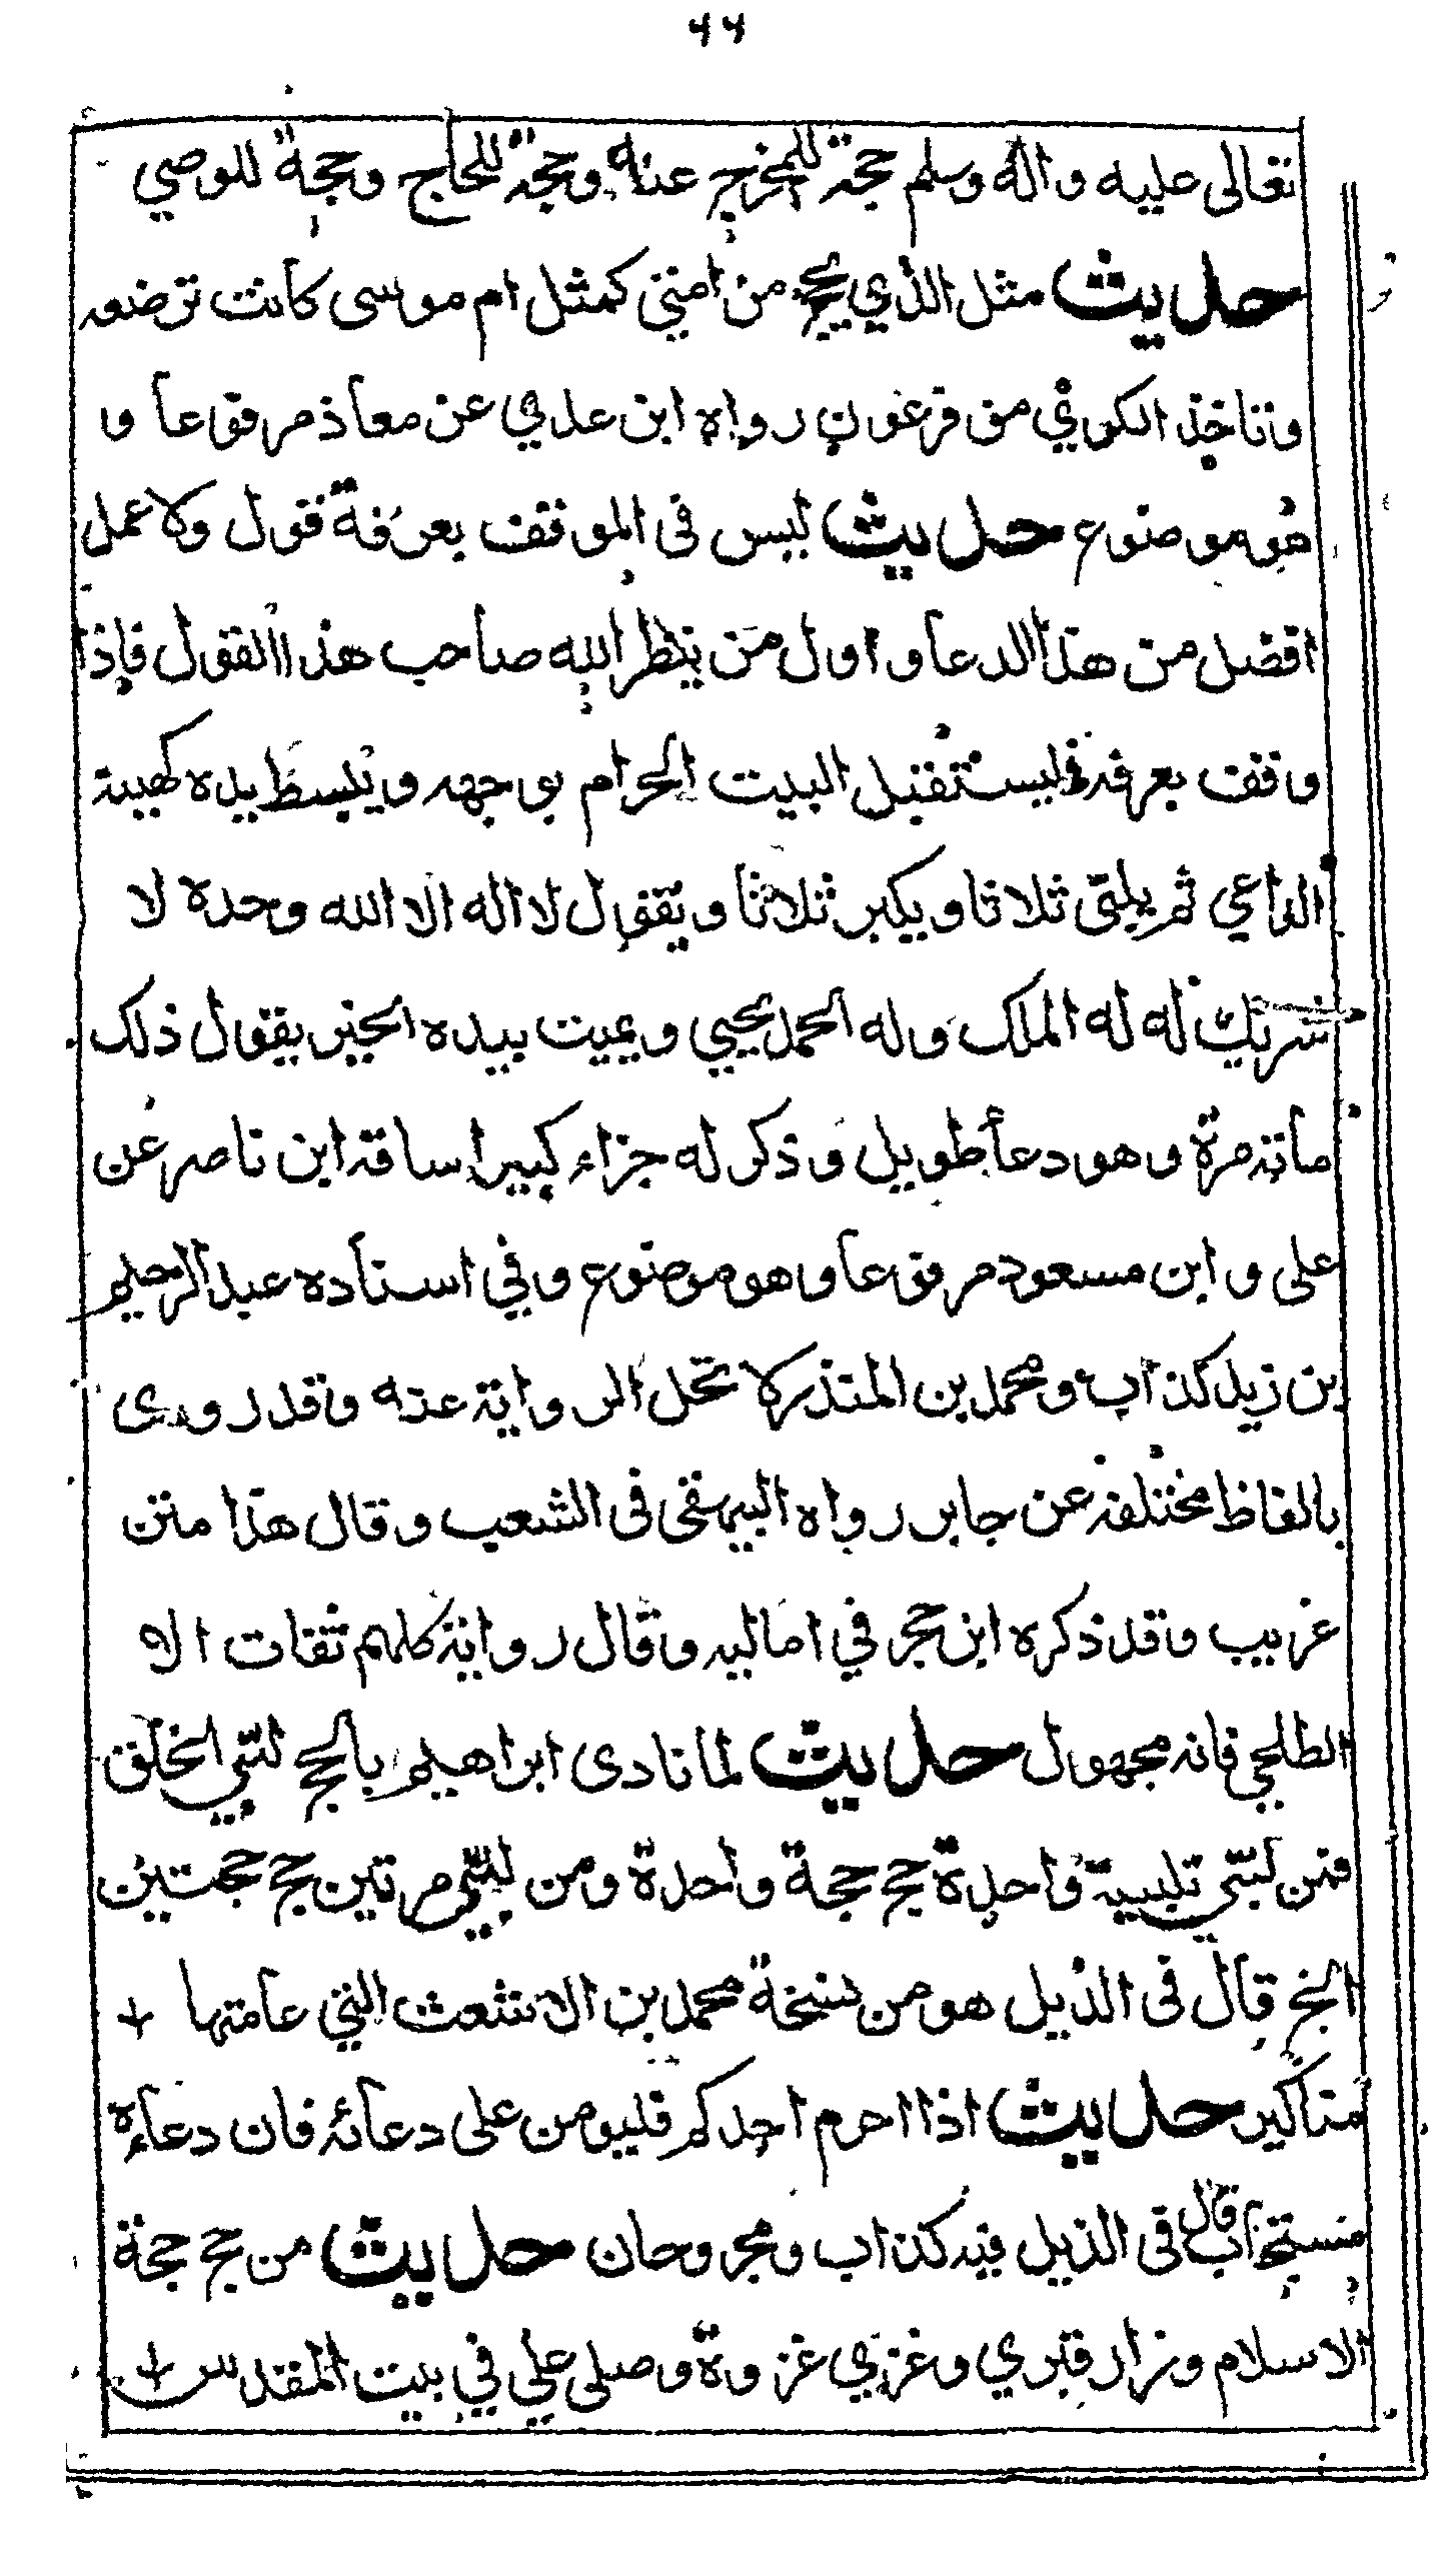 ٤٤
تعالى عليه واله وسلم حجة للمخرج عنه وحجة للحاج وحجة للوصي
حديث مثل الذي يحج من امتي كمثل ام موسى كانت ترضعه
وتاخذ الكري من فرعون رواه ابن عدي عن معاذ مرفوعا و
هو موضوع حديث ليس في الموقف بعرفة قول ولا عمل
افضل من هذا الدعا و اول من ينظر الله صاحب هذا القول فاذا
وقف بعرفة فليستقبل البيت الحرام بوجهه و يبسط يده كهيئة
الداعي ثم يلبي ثلاثا و يكبر ثلاثا و يقول لا اله الا الله وحده لا
شريك له له الملك وله الحمد يحيي ويميت بيده الخير يقول ذلك
مائة مرة وهو دعأ طويل و ذكر له جزاء كبيرا ساقه ابن ناصر عن
على و ابن مسعود مرفوعا وهو موضوع وفي اسناده عبد الرحيم
بن زيد كذاب ومحمد بن المنذر لا تحل الرواية عنه وقد روى
بالفاظ مختلفة عن جابر رواه البيهقى فى الشعب وقال هذا متن
غريب وقد ذكره ابن حجر في اماليه وقال رواية كلهم ثقات الا
الطلحي فانه مجهول حديث لما نادى ابراهيم بالحج لبي الخلق
فمن لبي تلبية واحدة حج حجة واحدة ومن لبي مرتين حج حجتين
الخ قال فى الذيل هو من نسخة محمد بن الاشعث التي عامتها
مناكير حديث اذا احرم احدكم فليومن على دعائه فان دعاءه
مستجاب قال فى الذيل فيه كذاب ومجروحان حديث من حج حجة
الاسلام وزار قبري وغزي غزوة وصلى علي في بيت المقدس